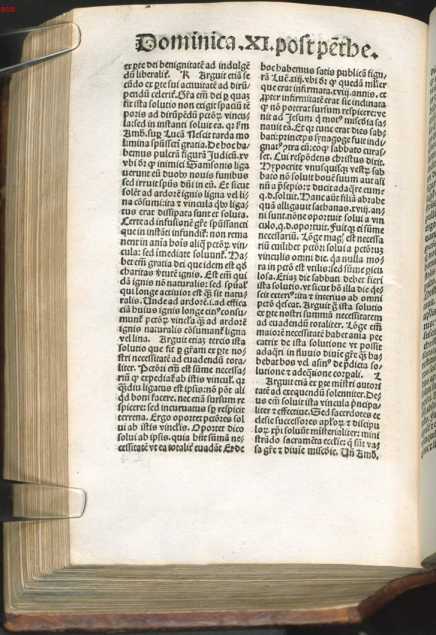 Dominica .XI. post pēthe.
ex pte dei benignitatē ad indulgē
dū liberalē. K Arguit etiā se
cūdo ex pte sui actiuitatē ad dirū
pendū celerē. Grā em̄ dei p quaȝ
fit ista solutio non exigit spaciū tē
poris ad dirūpēdū pctōꝝ vincu
la: sed in instanti soluit ea. qꝛ fm
Amb. sup Lucā Nescit tarda mo
limina spūssctī gratia. De hoc ha
bemus pulcrā figurā Judicū. xv
vbi dꝛ qꝛ inimici Samsonis liga
uerunt eū duobꝰ nouis funibus
sed irruit spūs dñi in eū. Et sicut
solēt ad ardorē ignis ligna vel li
na cōsumi ita et vincula qbꝰ liga
tus erat dissipata sunt et soluta.
Certe ad infusionē grē spūssancti
que in instāti infundit. non rema
nent in aīa hoīs aliq̄ pctōꝝ vin
cula: sed imediate soluunt. Da
bet em̄ gratia dei quidem est qd
charitas virtutē ignis. Est em̄ qui
dā ignis nō naturalis: sed spūal
qui longe actiuior est q̄ sit natu
ralis. Unde ad ardorē. i. ad effica
tiā huius ignis longe citiꝰ consu
munt pctōꝝ vincla q̄ ad ardorē
ignis naturalis cōsumant ligna
vel lina. Arguit etiaȝ tercio ista
solutio que fit p grām ex pte no
stri necessitatē ad euadendū tota
liter. Pctōri em̄ est sūme necessa
riū qꝛ expediat ab istis vincul. qꝛ
q̄diu ligatus est ipso: nō pōt ali
qd boni facere. nec etiā sursum re
spicere: sed incuruatus sp respicit
terrena. Ergo oportet pctōres sol
ui ab istis vinclis. Oportet dico
solui ab ipsis. quia hūt sūmā ne-
cessitatē vt ea totalit euadāt. Et de
hoc habemus satis publicā figu
rā Luc. xiij. vbi dꝛ qꝛ quedā mlier
que erat infirma. xviij. annis. et
ppter infirmitatē erat sic inclinata
qꝛ nō poterat sursum respicere: ve
nit ad Jesum qꝛ motꝰ misericordia sa
nauit eā. Et qꝛ tunc erat dies sab
bati: princeps synagoge fuit indi-
gnatꝰ ꝯtra eū: eo qꝛ sabbato curas
set. Cui respōdens christus dixit.
Hypocrite vnusquisqꝫ vestrꝝ sab
bato nō soluit bouē suum aut asi
nū a psepio: et ducit adaq̄re cum
q. d. soluit. Hanc aut filiā abrahe
quā alligauit sathanas. xviij. an-
is sunt. nōne oportuit solui a vin
culo. q. d. oportuit. Fuit qꝫ ei sūme
necessariū. Lōge magꝭ est necessa
riū cuilibet pctōri solui a pctōrum
vinculis omni die. qa nulla mo-
ra in pctō est vtilis: sed sūme picu
losa. Etiaȝ die sabbati debet fieri
ista solutio. vt sicut hō illa die qē
scit exteriꝰ: ita et interius ab omni
pctō q̄escat. Arguit q̄ ista solutio
ex pte nostri summā necessitatem
ad euadendū totaliter. Lōge em̄
maiorē necessitatē habet anīa pec
catrix de ista solutione vt possit
adaq̄ri in fluuio diuie grē q̄ ha
beat bos vel asinꝰ de pdicta so
lutione et adeq̄tione corpali. L
Arguit etiā ex pte ministri autori
tatē ad exequendū solenniter. De-
us em̄ soluit ista vincula pncipa-
liter et effectiue. Sed sacerdotes ec
clesie successores aploꝝ et discipu
loꝝ xpi soluūt misterialiter: mini
strādo sacramēta ecclie: q̄ sūt va-
sa grē et diuie miscōie. Un Amb.